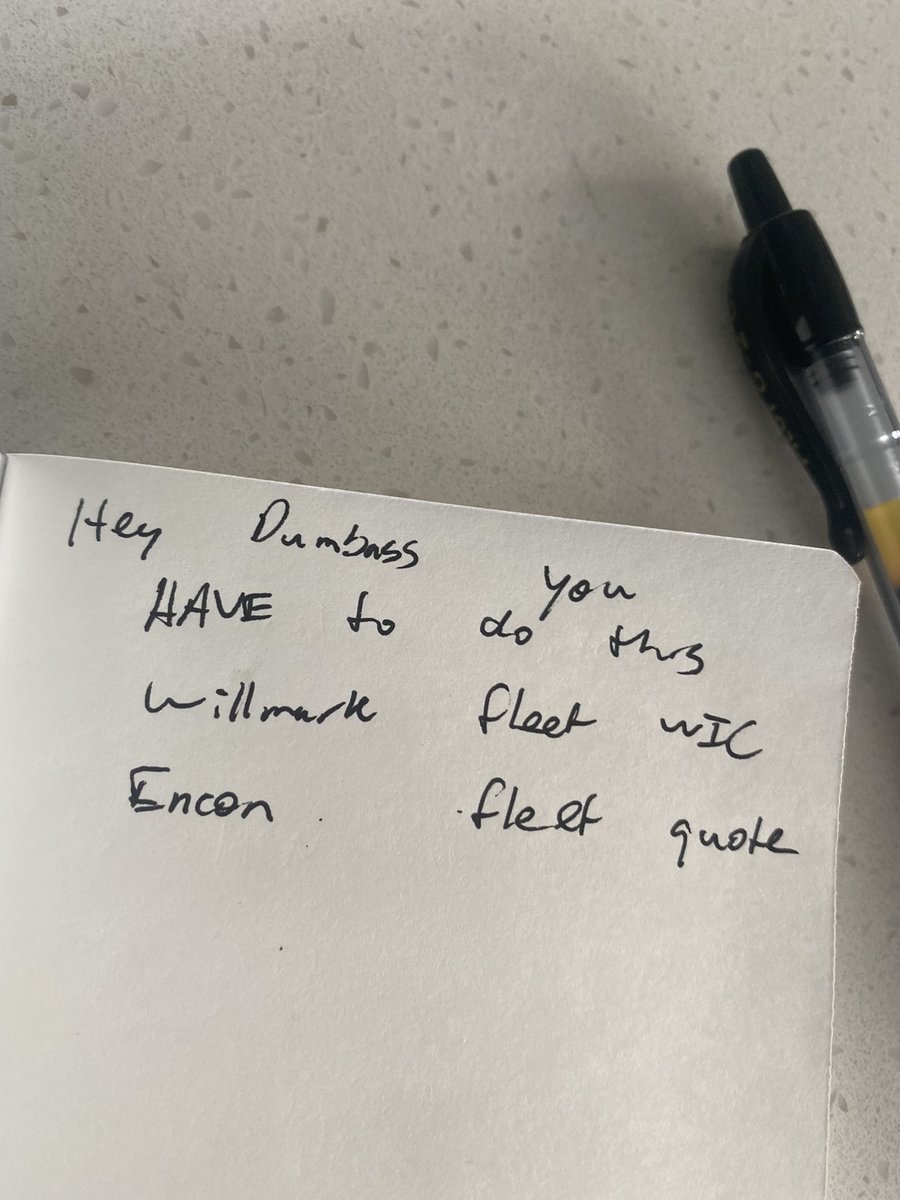 Hey Dumbass you
HAVE to do this
Willmark fleet WIC
Encon fleet quote